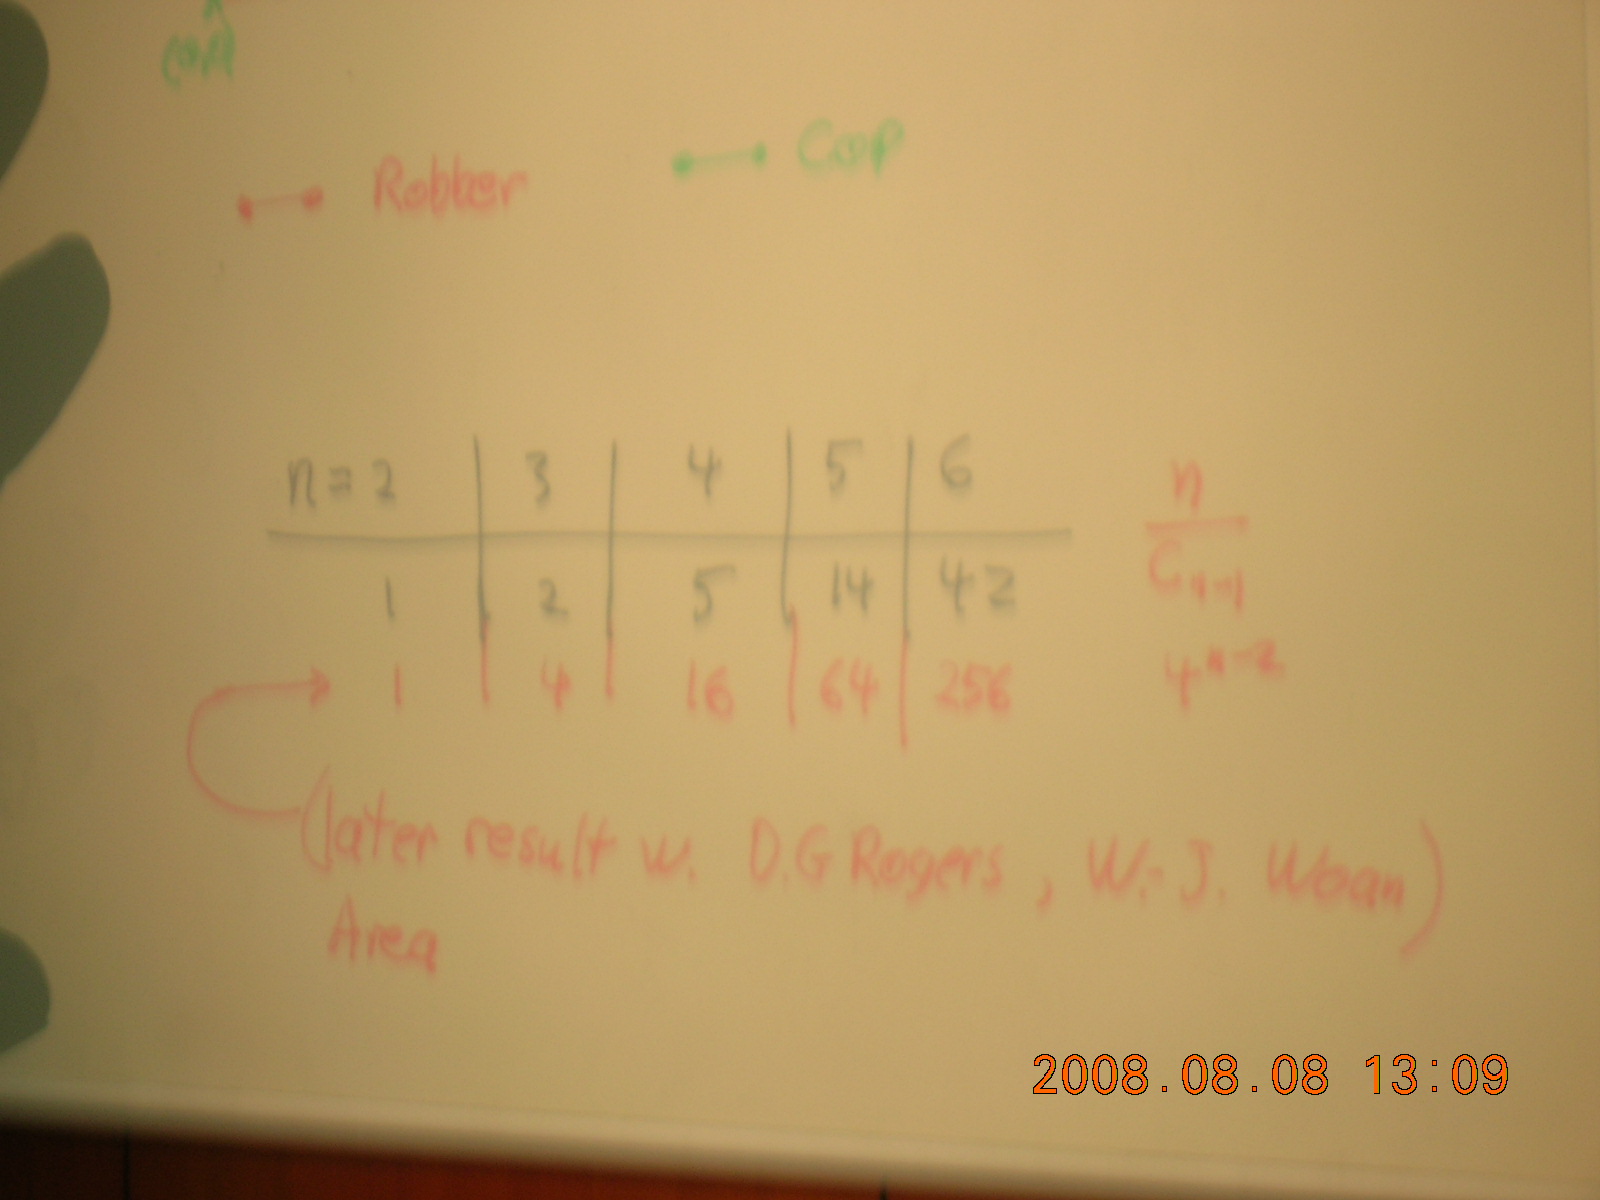 Robber
Cop
n = 2 3 4 5 6 n
1 2 5 14 42 C n-1
1 4 16 64 256 4^n-2
(later result w. D.G Rogers, W.-J. Woan)
Area
2008.08.08 13:09